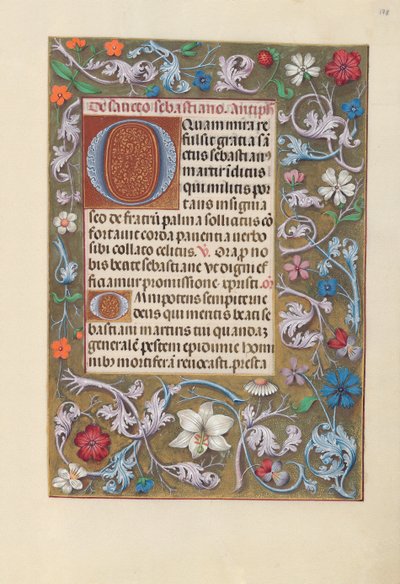 178
De sancto sebastiano. Antiph̃.
O Quam mira re
fulsit gratia sã
ctus sebastianꝰ
martir ĩclitus
qui militis por
tans insignia
sed de fratrũ palma sollicitus cõ
fortavit corda paventia verbo
sibi collato celitus. V̷. Ora p̱ no
bis beate sebastiane Vt digni ef
ficiamur promissione xpristi. Or̃
Omnipotens sempiterne
deus qui meritis beati se
bastiani martiris tui quandaz
generalẽ pestem epidimie homi
nibꝰ mortiferã revocasti. presta